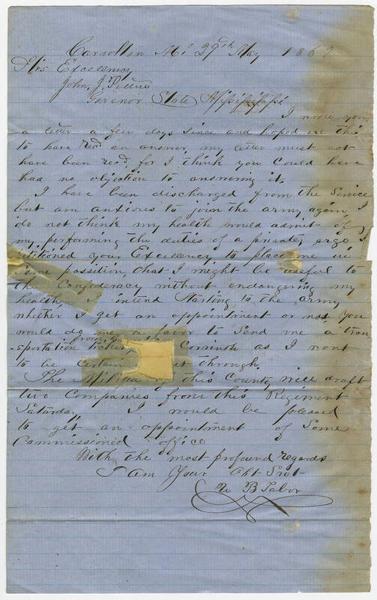 Carrollton Mi 29th May 1862
His Excelency
John J. Pettus
Govenor State Mississippi
I wrote you
a letter a few days since and hoped ere this
to have recd an answer, my letter must not
have been recd for I think you could have
had no objection to answering it.
I have been discharged from the Service
but am anxious to join the army again. I
do not think my health would admit of
my performing the duties of a private, ergo I
petitioned your Excellency to place me in
some possition that I might be useful to
the Confederacy without endangering my
health. I intend starting to the army
whether I get an appointment or not. You
would do me a favor to send me a tran
sportation ticket from Corinth as I want
to be certain get through.
The Militia of this County will draft
two Companies from this Regiment
Saturday. I would be pleased
to get an appointment of some
Commissioned office
With the most profound regards
I am Your Obt Svt
B Tabor